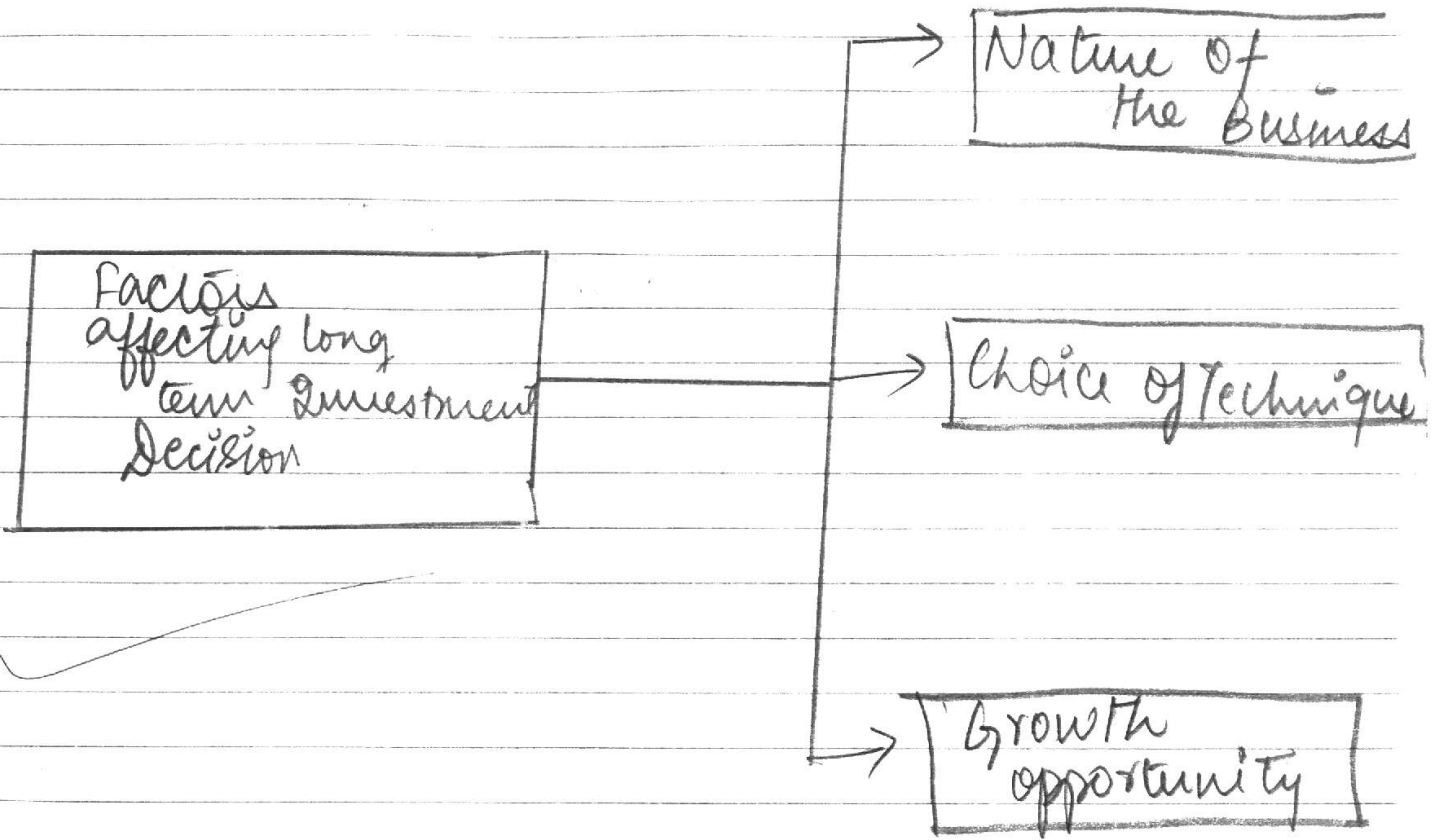 Factors
affecting long
term Investment
Decision
Nature of
the Business
Choice of Technique
Growth
opportunity